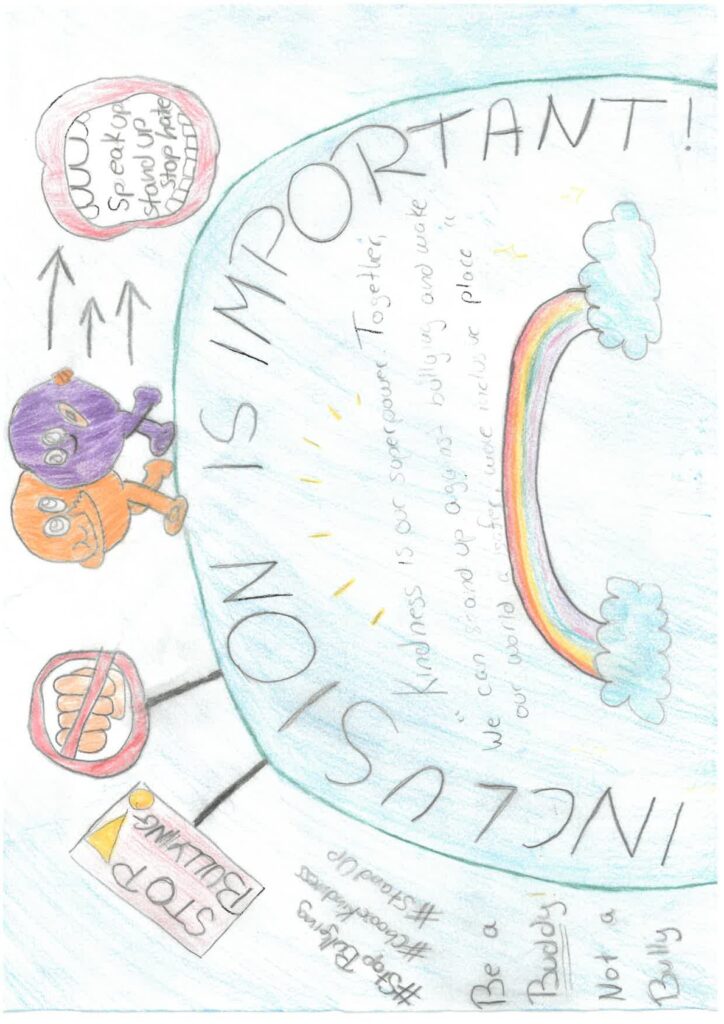 STOP
BULLYING
Speak up
stand up
stop hate
#StopBullying
#ChooseKindness
#StandUp
INCLUSION IS IMPORTANT!
Kindness is our superpower. Together,
" We can stand up against bullying and make
our world a safer, more inclusive place "
Be a
Buddy
Not a
Bully